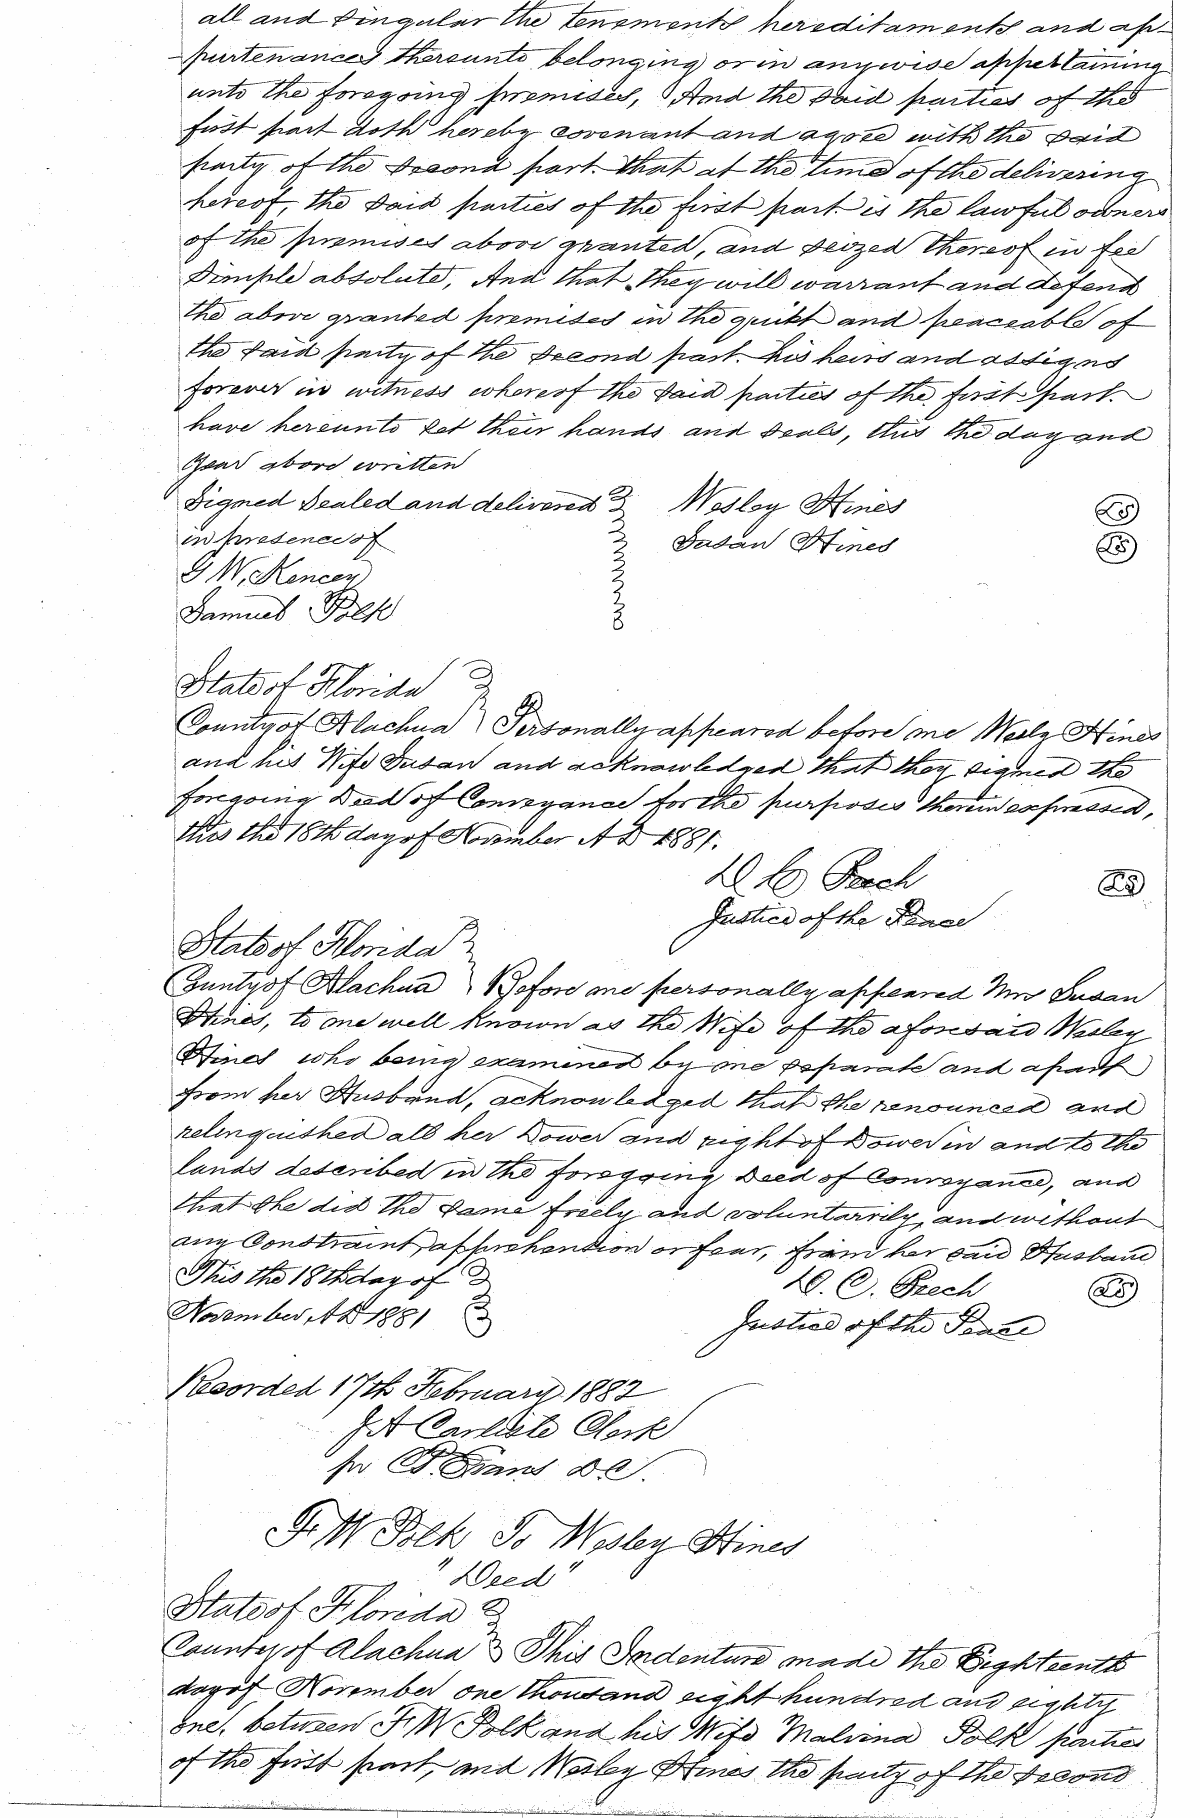 all and singular the tenements hereditaments and ap-
purtenances thereunto belonging or in anywise appertaining
unto the foregoing premises, And the said parties of the
first part doth hereby covenant and agree with the said
party of the second part. that at the time of the delivering
hereof, the said parties of the first part is the lawful owners
of the premises above granted, and seized thereof in fee
Simple absolute, And that they will warrant and defend
the above granted premises in the quiet and peaceable of
the said party of the second part. his heirs and assigns
forever in witness whereof the said parties of the first part.
have hereunto set their hands and seals, this the day and
Year above written
Signed Sealed and delivered Wesley Hines LS
in presence of Susan Hines LS
G W, Kencey
Samuel Polk
State of Florida
County of Alachua Personally appeared before me Wesly Hines
and his Wife Susan and acknowledged that they signed the
foregoing Deed of Conveyance for the purposes therein expressed,
this the 18th day of November A D 1881.
D C LS
Justice of the Peace
State of Florida
County of Alachua Before me personally appeared Mrs Susan
Hines, to me well Known as the Wife of the aforesaid Wesley
Hines who being examined by me separate and apart
from her Husband, acknowledged that she renounced and
relinquished all her Dower and right of Dower in and to the
lands described in the foregoing Deed of Conveyance, and
that she did the same freely and voluntarrily, and without
any Constraint, apprehention or fear, from her said Husband
This the 18th day of D. C. LS
November, A D 1881 Justice of the Peace
Recorded 17th February 1882
J A Carlisle Clerk
pr D.C.
F. W Polk To Wesley Hines
"Deed"
State of Florida
County of Alachua This Indenture made the Eighteenth
day of November one thousand eight hundred and eighty
one, between F. W Polk and his Wife Malvina Polk parties
of the first part, and Wesley Hines the party of the second